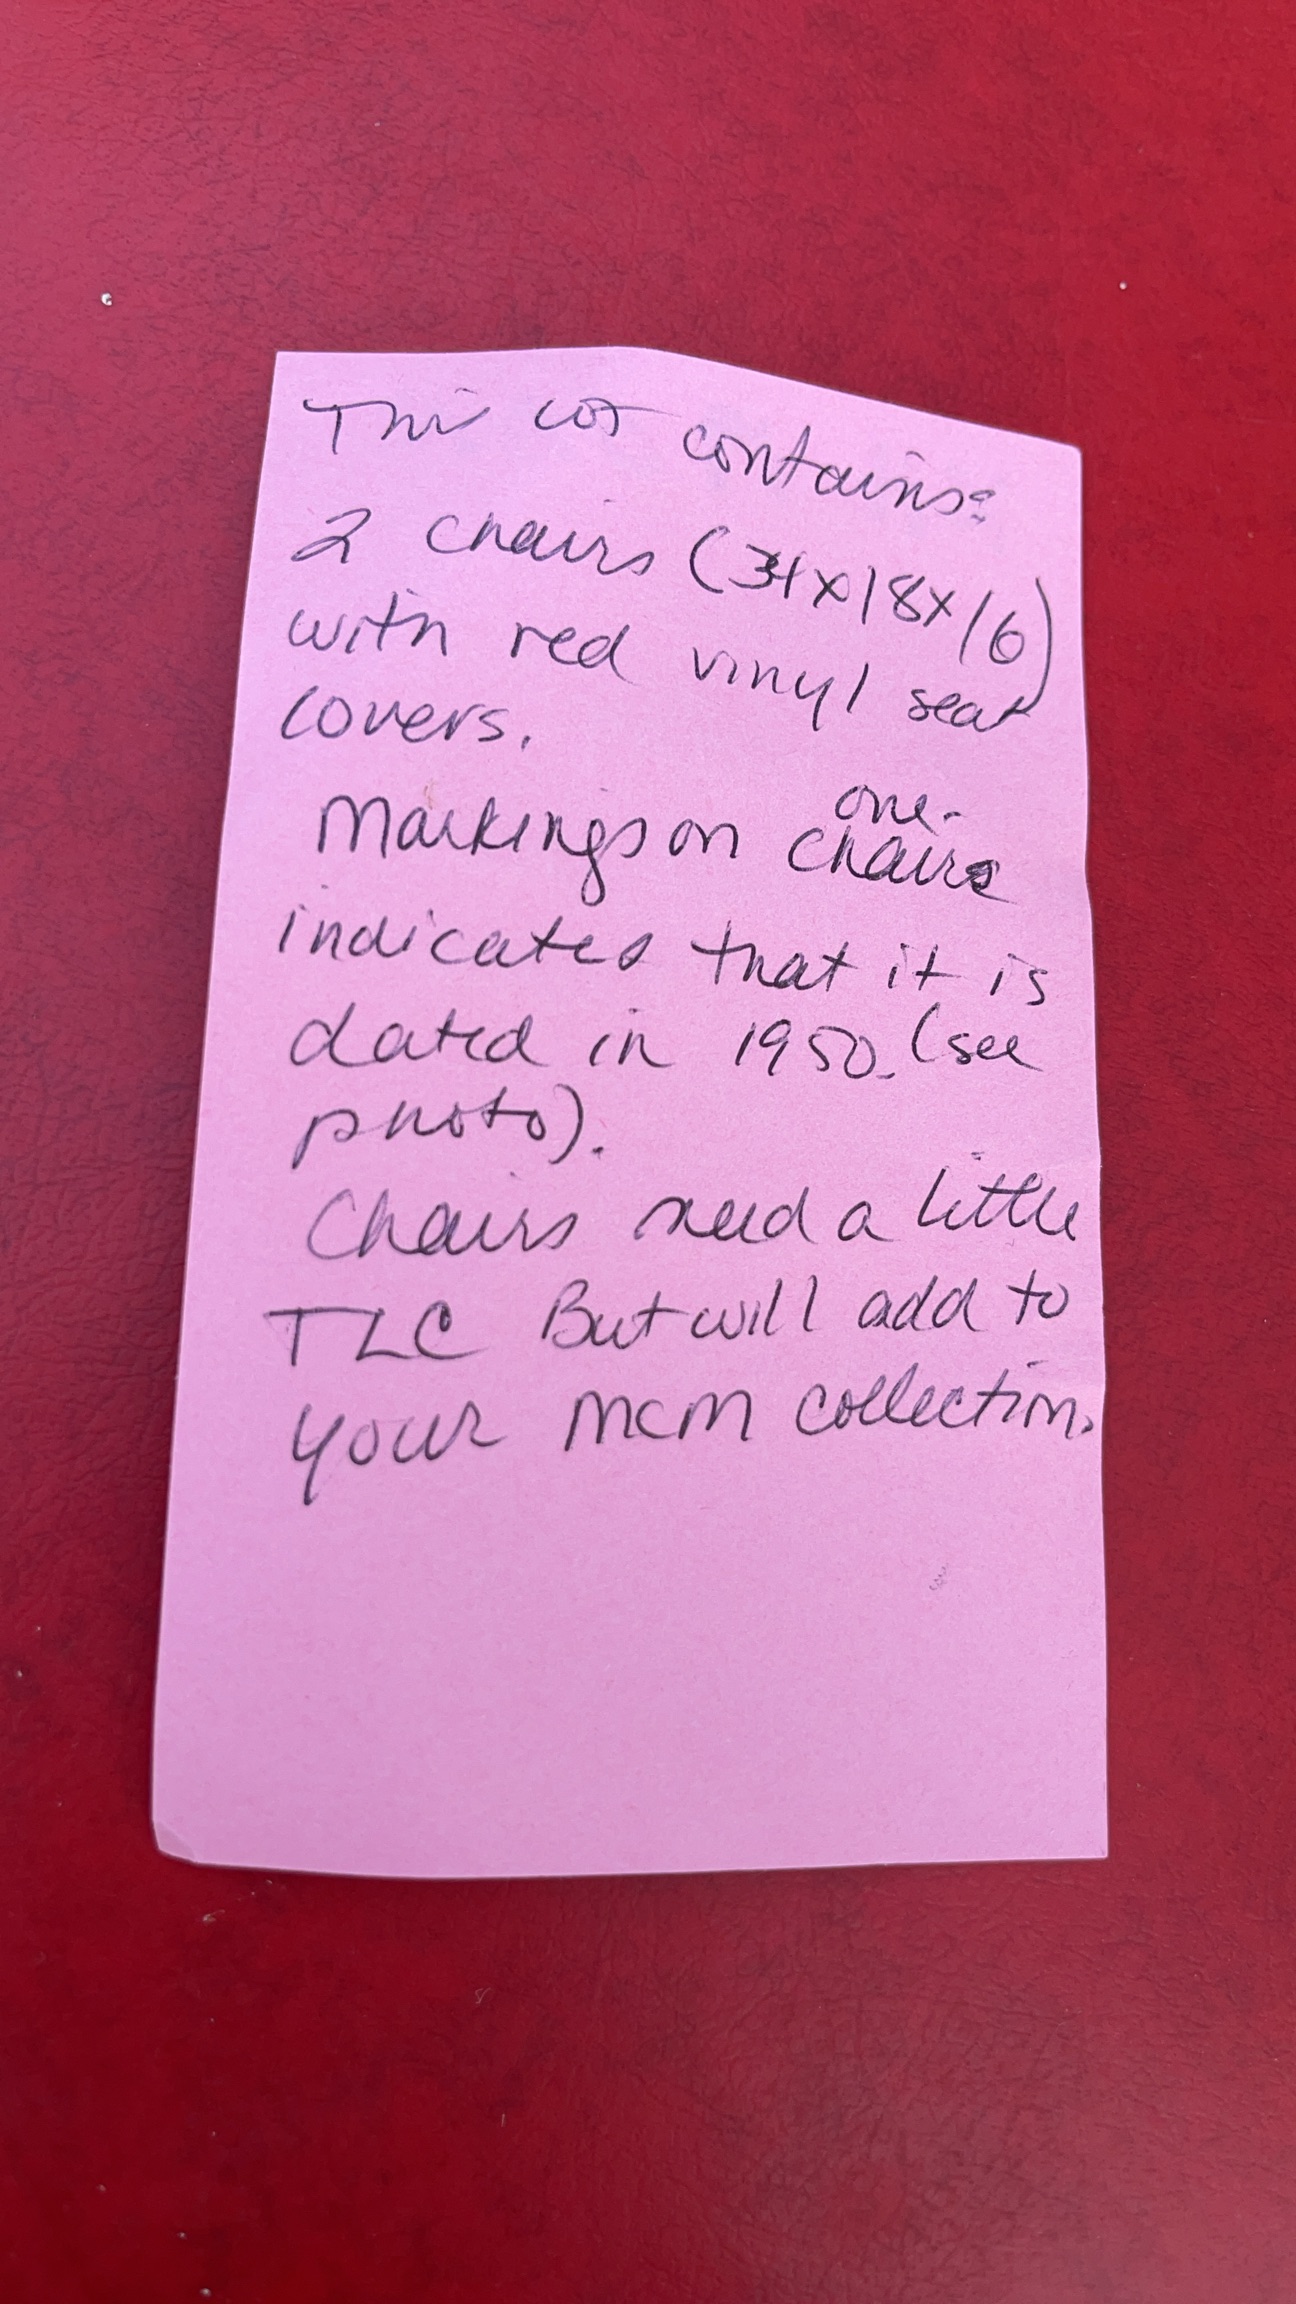 This Lot contains:
2 chairs (34x18x16)
with red vinyl seat
covers.
Markings on one chair
indicates that it is
dated in 1950. (see
photo).
Chairs need a little
TLC But will add to
your mcm collection.